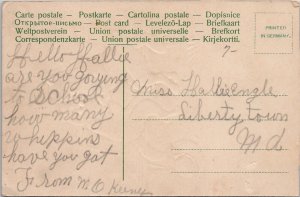 Carte postale – Postkarte – Cartolina postale – Dopisnice
Открытое-письмо — Post card – Levelező-Lap – Briefkaart
Weltpostverein – Union postale universelle – Brefkort
Correspondenzkarte – Unione postale universale – Kirjekortti.
PRINTED
IN GERMANY.
Hello Hallie
are you gouying
to School
how many
whippins
have you gat
From M.C
Miss Hallie Engle
Liberty Town
Md